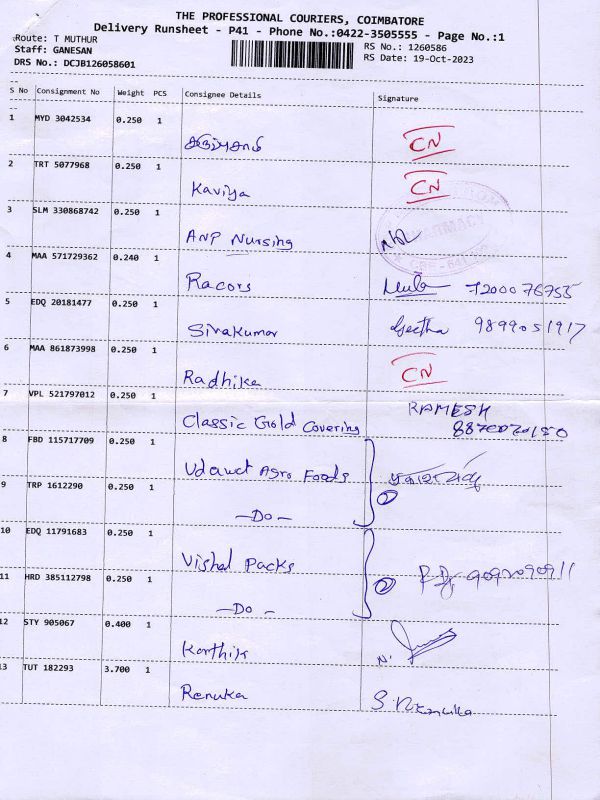 THE PROFESSIONAL COURIERS, COIMBATORE
Delivery Runsheet - P41 - Phone No.:0422-3505555 - Page No.:1
Route: T MUTHUR
RS No.: 1260586
Staff: GANESAN
RS Date: 19-Oct-2023
DRS No.: DCJB126058601
S No Consignment No Weight PCS Consignee Details Signature
1 MYD 3042534 0.250 1 CN
2 TRT 5077968 0.250 1 Kaviya CN
3 SLM 330868742 0.250 1 ANP Nursing
4 MAA 571729362 0.240 1 Racors 7200076755
5 EDQ 20181477 0.250 1 Sivakumar Geetha 9899051917
6 MAA 861873998 0.250 1 Radhika CN
7 VPL 521797012 0.250 1 Classic Gold Covering RAMESH
8 FBD 115717709 0.250 1 Agro Foods
9 TRP 1612290 0.250 1 -Do- 2
10 EDQ 11791683 0.250 1 Vishal Packs
11 HRD 385112798 0.250 1 -Do- 2
12 STY 905067 0.400 1 Karthik N.
13 TUT 182293 3.700 1 Renuka S. Renuka